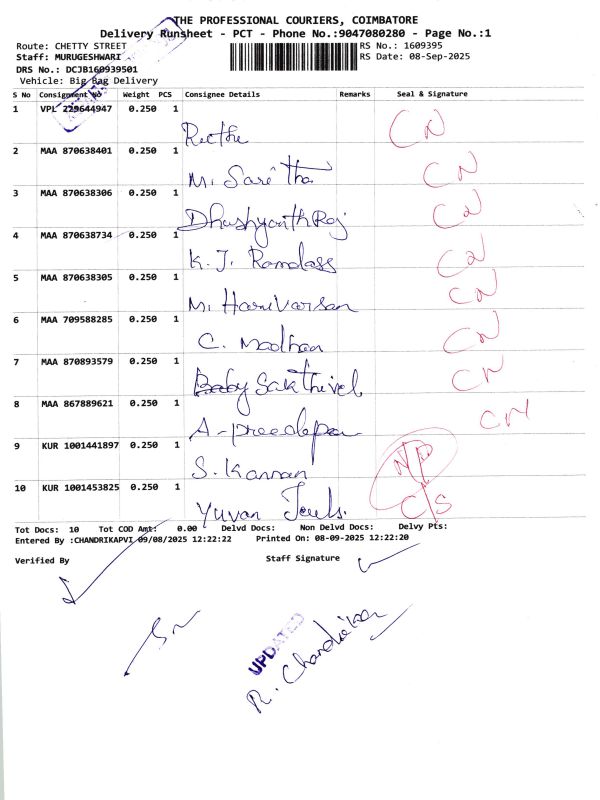 THE PROFESSIONAL COURIERS, COIMBATORE
Delivery Runsheet - PCT - Phone No.:9047080280 - Page No.:1
Route: CHETTY STREET
RS No.: 1609395
Staff: MURUGESHWARI
RS Date: 08-Sep-2025
DRS No.: DCJB160939501
Vehicle: Big Bag Delivery
S No Consignment No Weight PCS Consignee Details Remarks Seal & Signature
1 VPL 229644947 0.250 1
CN
2 MAA 870638401 0.250 1
M. Saritha CN
3 MAA 870638306 0.250 1
Dhushyanth Raj CN
4 MAA 870638734 0.250 1
K. J. Ramdass CN
5 MAA 870638305 0.250 1
M. Harivarsan CN
6 MAA 709588285 0.250 1
C. Madhan CN
7 MAA 870893579 0.250 1
Baby Sakthivel CN
8 MAA 867889621 0.250 1
A. CN
9 KUR 1001441897 0.250 1
S. Kannan ND
10 KUR 1001453825 0.250 1
Yuvan C/S
Tot Docs: 10 Tot COD Amt: 0.00 Delvd Docs: Non Delvd Docs: Delvy Pts:
Entered By :CHANDRIKAPVI 09/08/2025 12:22:22 Printed On: 08-09-2025 12:22:20
Verified By Staff Signature
UPDATED
R. Chandrika